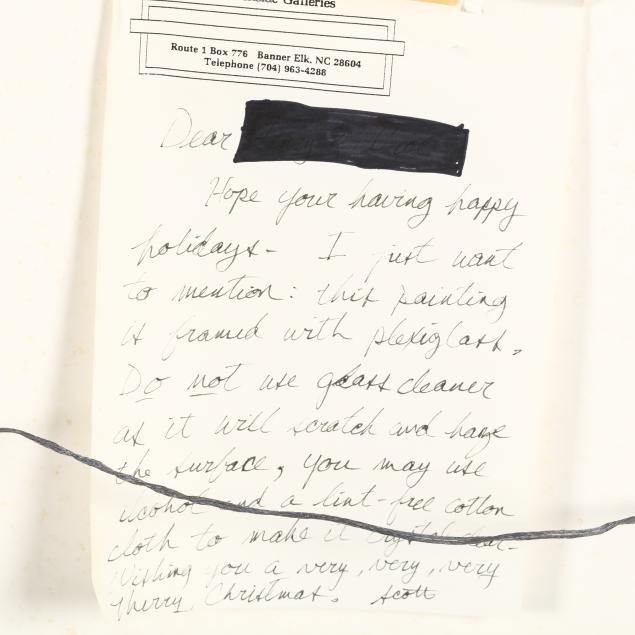 Galleries
Route 1 Box 776 Banner Elk, NC 28604
Telephone (704) 963-4288
Dear
Hope your having happy
holidays- I just want
to mention: this painting
is framed with plexiglass.
Do not use glass cleaner
as it will scratch and haze
the surface, you may use
alcohol and a lint-free cotton
cloth to make it crystal clear-
Wishing you a very, very, very
Merry Christmas. Scott